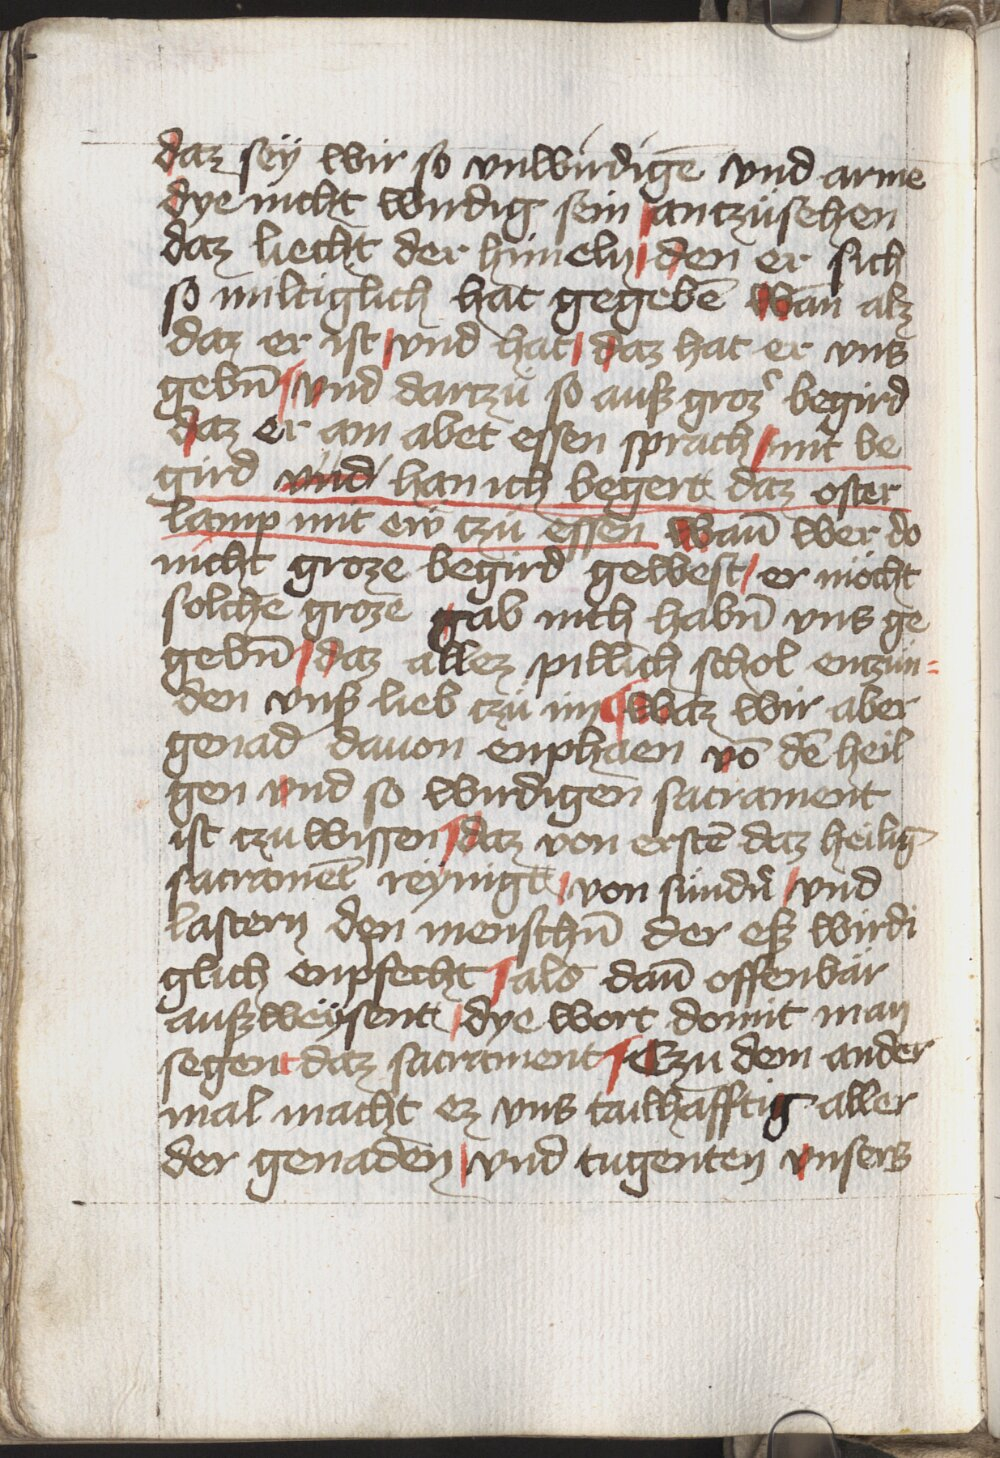 daz sey wir so vnwirdigē vnd arme
dye nicht wirdig sein antzůsehen
daz liecht der himelṇ den er sich
so miltiglich hat gegebē wan̄ alz
daz er ist vnd hat daz hat er vns
gebn̄ vnd dartzů so auß groz̾ begird
daz er am abet essen sprach mit be
gird vnd han ich begert daz oster
lamp mit ew tzů essen wan̄ wer do
nicht groze begird gewest er möcht
solche groze gab nich habn̄ vns ge
gebn̄ daz allez pillich schol entzün=
den vnß lieb tzů im waz wir aber
genad dauon enphaen vō dē heil
gen vnd so wirdigen sacrament
ist tzu wissen daz von erstē daz heilig
sacramēt reynigt von sündn̄ vnd
lastern den menschn̄ der eß wirdi
glich enpfecht als dan̄ offenbär
außweysent dye wort domit man
segent daz sacrament Czu dem ander
mal macht ez vns tailhafftig aller
der genaden vnd tugenten vnsers